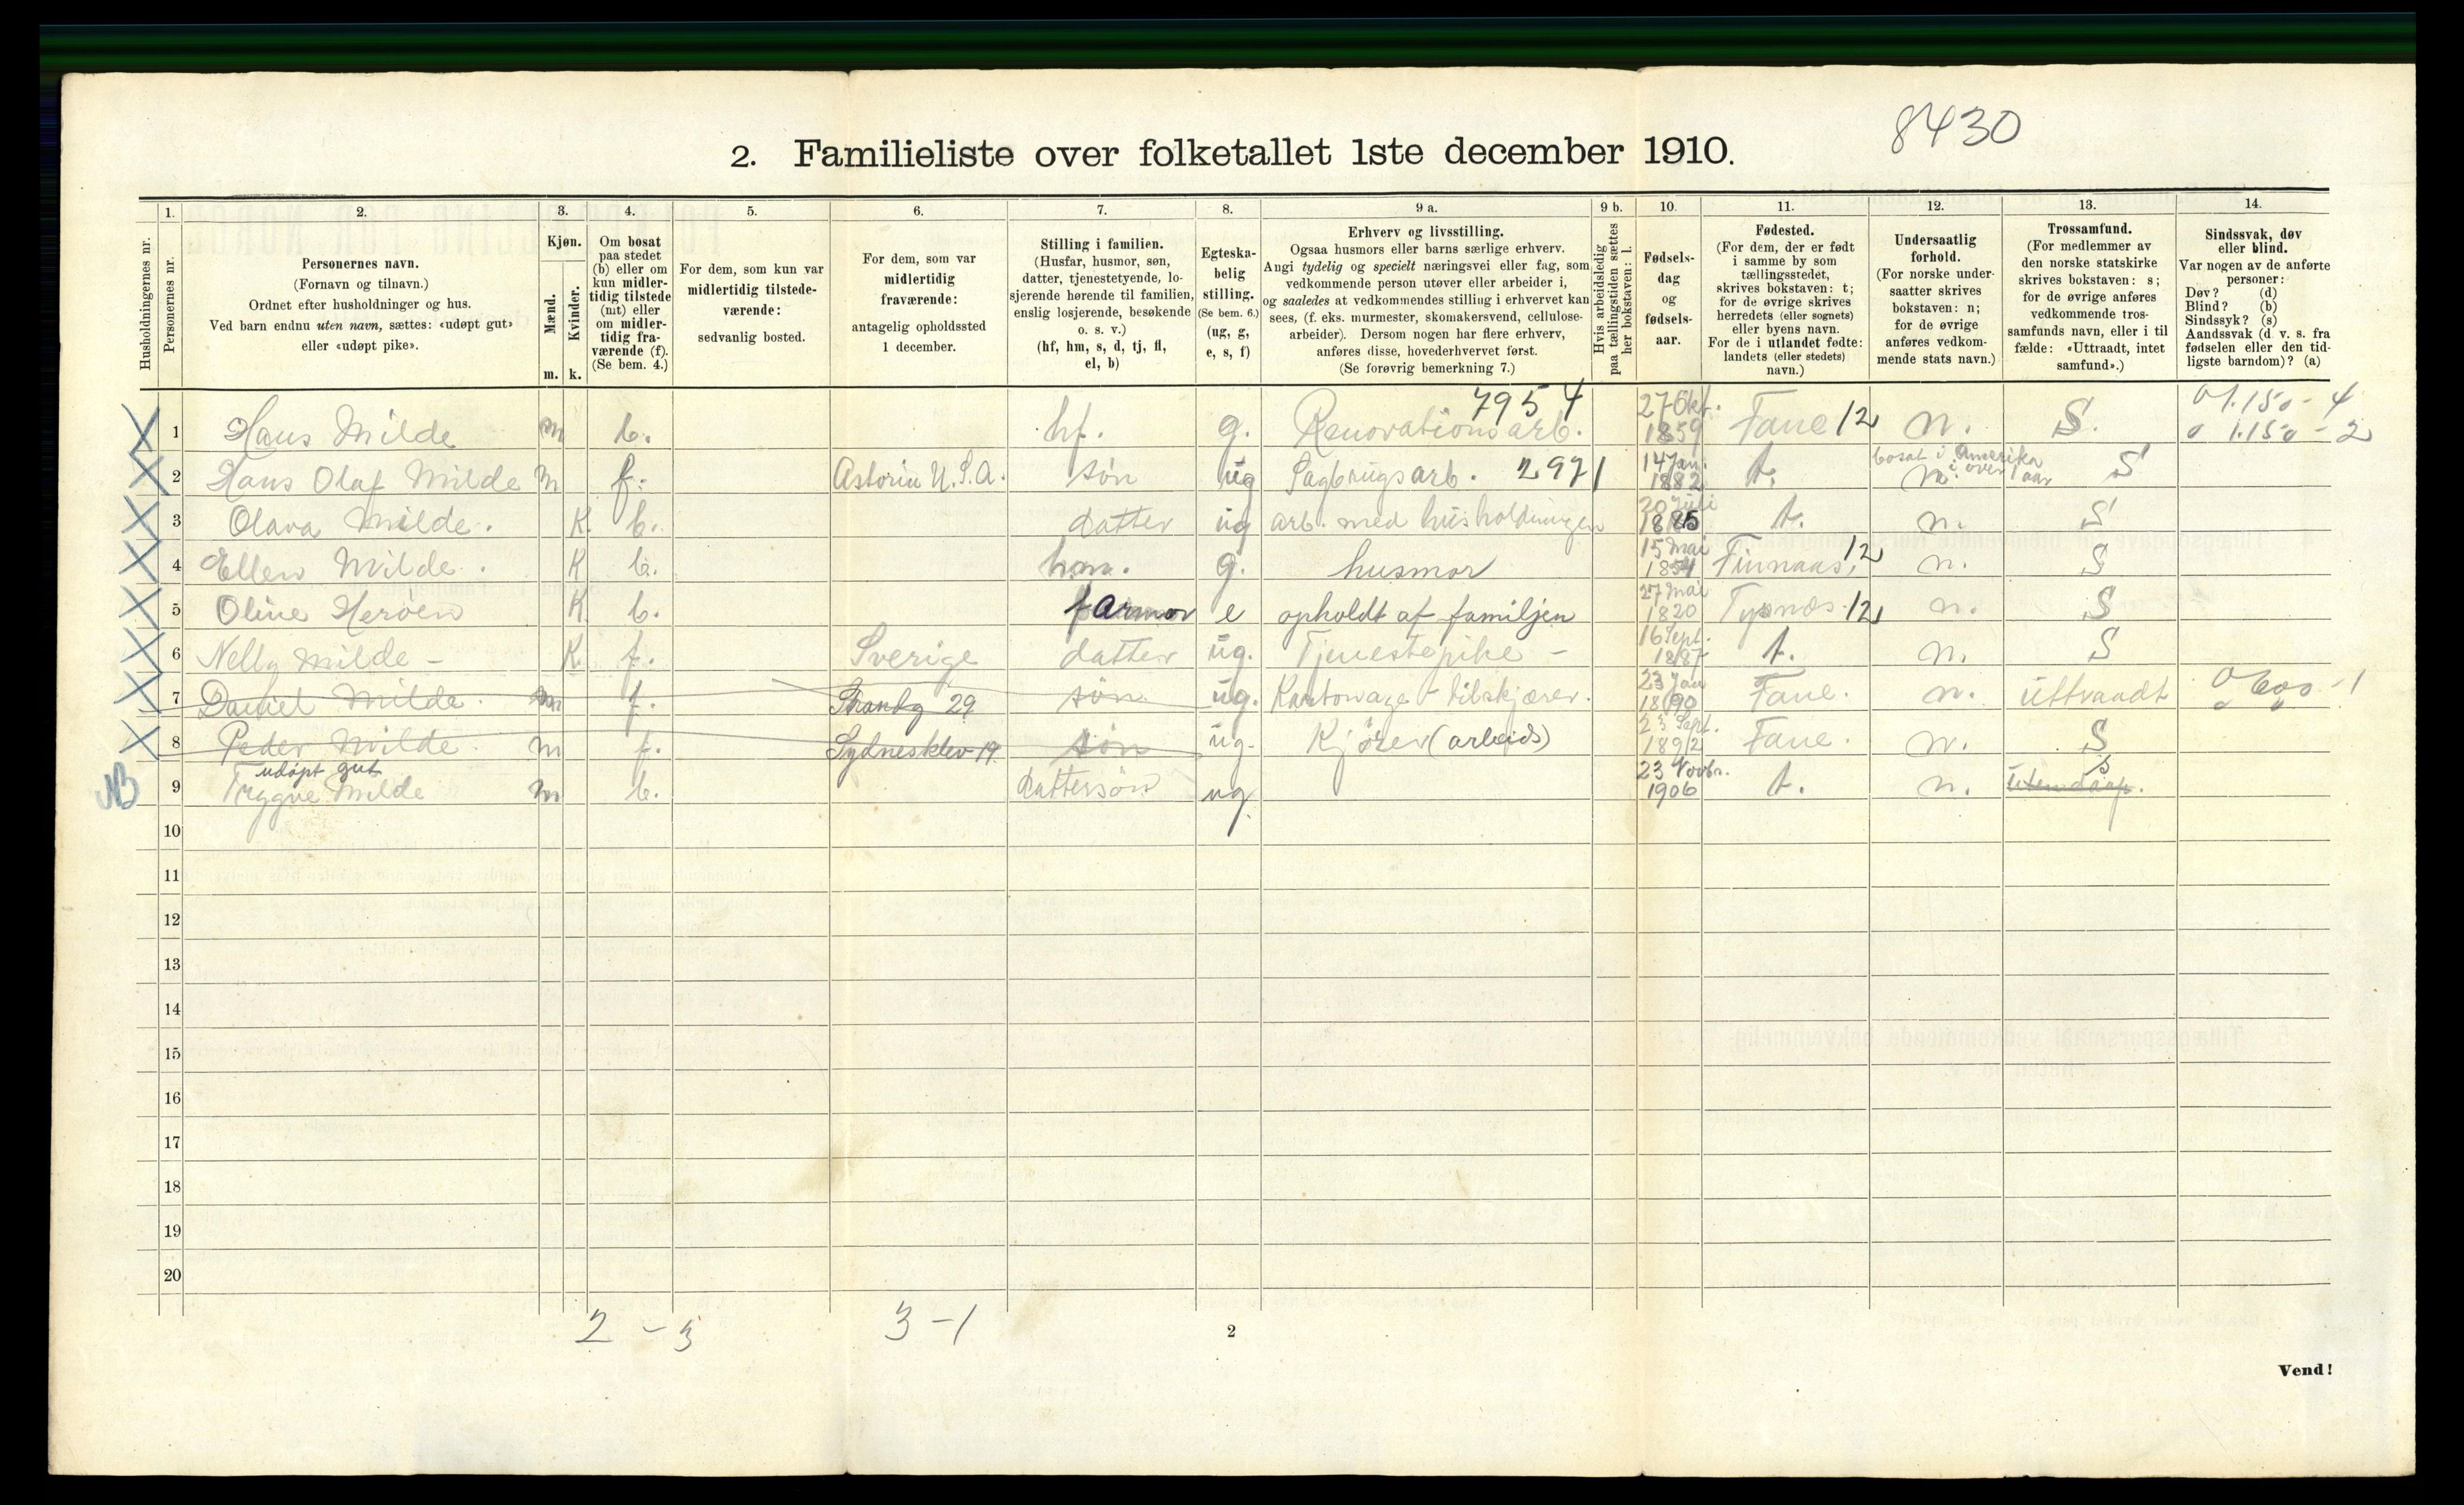 8430
2. Familieliste over folketallet 1ste december 1910.
1. 2. 3. 4. 5. 6. 7. 8. 9 a. 9 b. 10. 11. 12. 13. 14.
Husholdningernes nr.
Personernes nr.
Personernes navn.
(Fornavn og tilnavn.)
Ordnet efter husholdninger og hus.
Ved barn endnu uten navn, sættes: «udøpt gut»
eller «udøpt pike».
Kjøn.
Mænd.
Kvinder.
m. k.
Om bosat
paa stedet
(b) eller om
kun midler-
tidig tilstede
(mt) eller
om midler-
tidig fra-
værende (f).
(Se bem. 4.)
For dem, som kun var
midlertidig tilstede-
værende:
sedvanlig bosted.
For dem, som var
midlertidig
fraværende:
antagelig opholdssted
1 december.
Stilling i familien.
(Husfar, husmor, søn,
datter, tjenestetyende, lo-
sjerende hørende til familien,
enslig losjerende, besøkende
o. s. v.)
(hf, hm, s, d, tj, fl,
el, b)
Egteska-
belig
stilling.
(Se bem. 6.)
(ug, g,
e, s, f)
Erhverv og livsstilling.
Ogsaa husmors eller barns særlige erhverv.
Angi tydelig og specielt næringsvei eller fag, som
vedkommende person utøver eller arbeider i,
og saaledes at vedkommendes stilling i erhvervet kan
sees, (f. eks. murmester, skomakersvend, cellulose-
arbeider). Dersom nogen har flere erhverv,
anføres disse, hovederhvervet først.
(Se forøvrig bemerkning 7.)
Hvis arbeidsledig
paa tællingstiden sættes
her bokstaven: l.
Fødsels-
dag
og
fødsels-
aar.
Fødested.
(For dem, der er født
i samme by som
tællingsstedet,
skrives bokstaven: t;
for de øvrige skrives
herredets (eller sognets)
eller byens navn.
For de i utlandet fødte:
landets (eller stedets)
navn.)
Undersaatlig
forhold.
(For norske under-
saatter skrives
bokstaven: n;
for de øvrige
anføres vedkom-
mende stats navn.)
Trossamfund.
(For medlemmer av
den norske statskirke
skrives bokstaven: s;
for de øvrige anføres
vedkommende tros-
samfunds navn, eller i til
fælde: «Uttraadt, intet
samfund».)
Sindssvak, døv
eller blind.
Var nogen av de anførte
personer:
Døv? (d)
Blind? (b)
Sindssyk? (s)
Aandssvak (d. v. s. fra
fødselen eller den tid-
ligste barndom)? (a)
7954
1 Hans Milde m b. hf. g. Renovationsarb. 27 Okt. 1859 Fane 12 n. S. 1.150 - 4
1.150 - 2
2 Hans Olaf Milde m f. Astoria U.S.A. søn ug Sagbrugsarb. 2971 14 Jan. 1882 t. bosat i Amerika i over 1 aar n. S
3 Olava Milde. K. b. datter ug arb. med husholdningen 20 Juli 1885 t. n. S
4 Ellen Milde. K b. hm. g. husmor 15 Mai 1854 Finnaas, 12 n. S
5 Oline Heroen K. b. farmor e opholdt af familjen 27 Mai 1820 Tysnæs. 12 n. S
6 Nelly Milde - K. f. Sverige datter ug. Tjenestepike - 16 Sept. 1887 t. n. S
7 Daniel Milde. m f. Strandg 29 søn ug. Kartowage-tilskjærer. 23 Jan 1890 Fane. n. uttraadt
8 Peder Milde. m f. Sydnesklev 19. søn ug. Kjører (arbeids) 23 Sept. 1892 Fane. n. S
NB 9 udøpt gut
Trygve Milde m b. dattersøn ug. 23 Novbr. 1906 t. n. s
10
11
12
13
14
15
16
17
18
19
20
2 - 3 3 - 1
2
Vend!